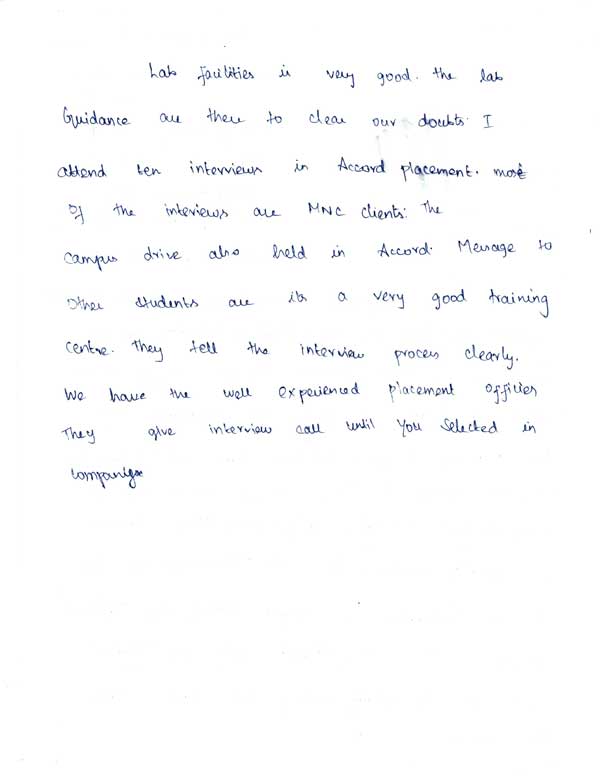 Lab facilities is very good. the lab
Guidance are there to clear our doubts. I
attend ten interviews in Accord placement. most
of the interviews are MNC clients. The
campus drive also held in Accord. Message to
other students are its a very good training
centre. They tell the interview process clearly.
We have the well experienced placement officies
They give interview call until you selected in
companies